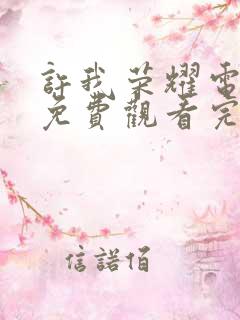 許我榮耀電
免費觀看完
信諾佰